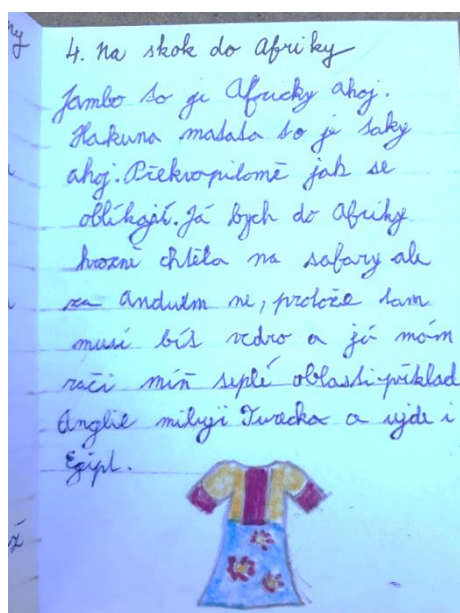 4. Na skok do Afriky
Jambo to je Africky ahoj.
Hakuna matata to je taky
ahoj. Překvapilomě jak se
oblíkají. Já bych do Afriky
hrozně chtěla na safary ale
za ne, protože tam
musí bít vedro a já mám
rači míň teplé oblasti-příklad
Anglie miluji Turecko a ujde i
Egipt.